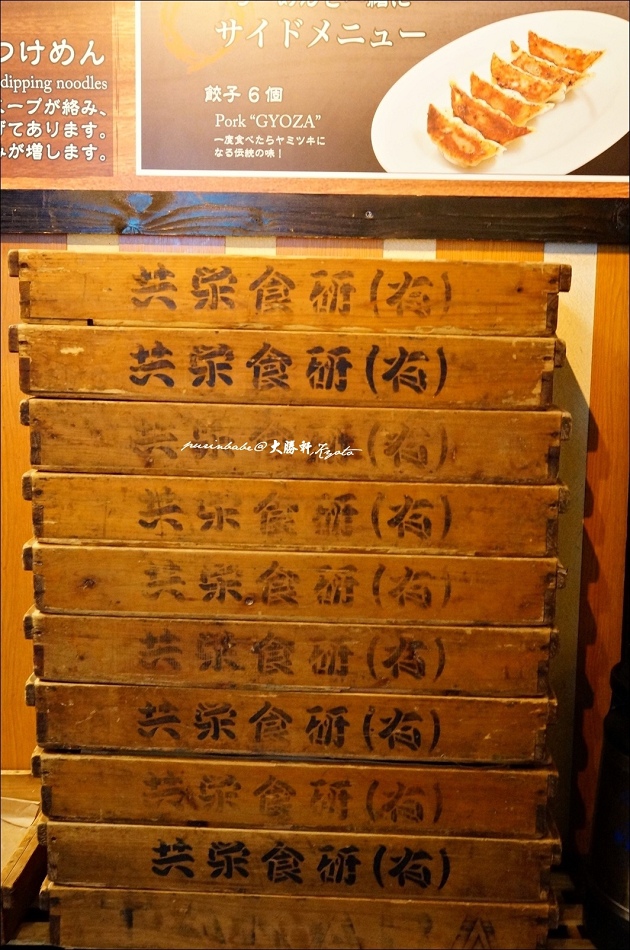 つけめん
dipping noodles
ープが絡み、
げてあります。
みが増します。
サイドメニュー
餃子 6 個
Pork "GYOZA"
一度食べたらヤミツキに
なる伝統の味！
共栄食研(有)
共栄食研(有)
共栄食研(有)
purinbabe@大勝軒,Kyoto
共栄食研(有)
共栄食研(有)
共栄食研(有)
共栄食研(有)
共栄食研(有)
共栄食研(有)